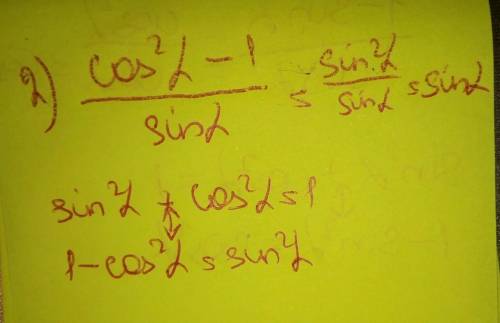 2) (cos²α − 1)/sinα = sin²α/sinα = sinα
sin²α + cos²α = 1
1 − cos²α = sin²α